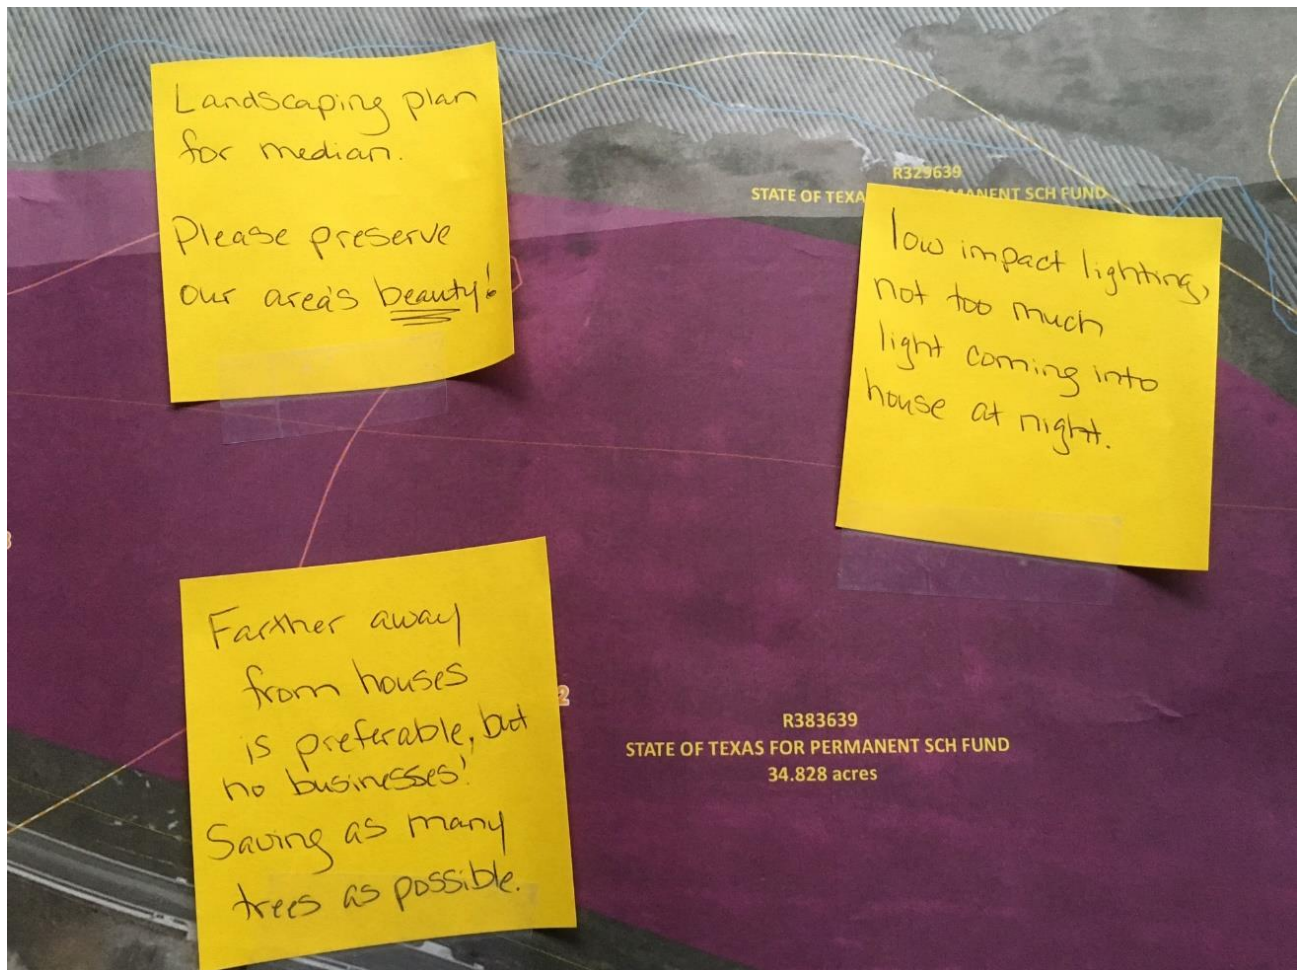 Landscaping plan
for median.
Please preserve
our area's beauty!
R329639
STATE OF TEXA PERMANENT SCH FUND
low impact lighting,
not too much
light coming into
house at night.
Farther away
from houses
is preferable, but
no businesses!
Saving as many
trees as possible.
2
R383639
STATE OF TEXAS FOR PERMANENT SCH FUND
34.828 acres